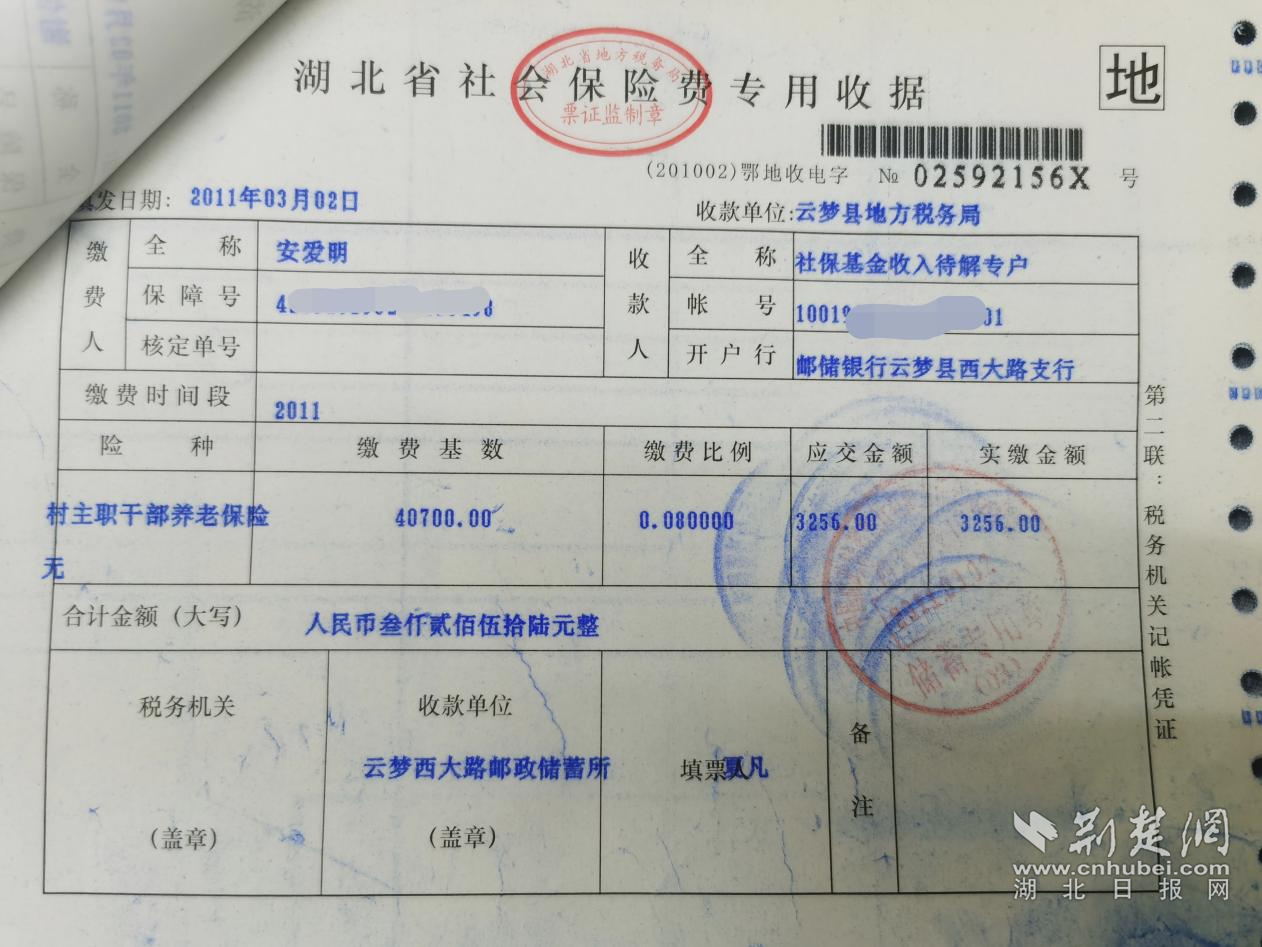 湖北省社会保险费专用收据
湖北省地方税务局
票证监制章
地
(201002)鄂地收电字 № 02592156X 号
填发日期: 2011年03月02日
收款单位:云梦县地方税务局
缴费人
全称 安爱明
保障号
核定单号
收款人
全称 社保基金收入待解专户
帐号
开户行 邮储银行云梦县西大路支行
缴费时间段 2011
险种 缴费基数 缴费比例 应交金额 实缴金额
村主职干部养老保险 40700.00 0.080000 3256.00 3256.00
无
合计金额(大写) 人民币叁仟贰佰伍拾陆元整
税务机关
(盖章)
收款单位
云梦西大路邮政储蓄所
(盖章)
填票人 夏凡
备注
储蓄专用章
(03)
第二联:税务机关记帐凭证
荆楚网
www.cnhubei.com
湖北日报网